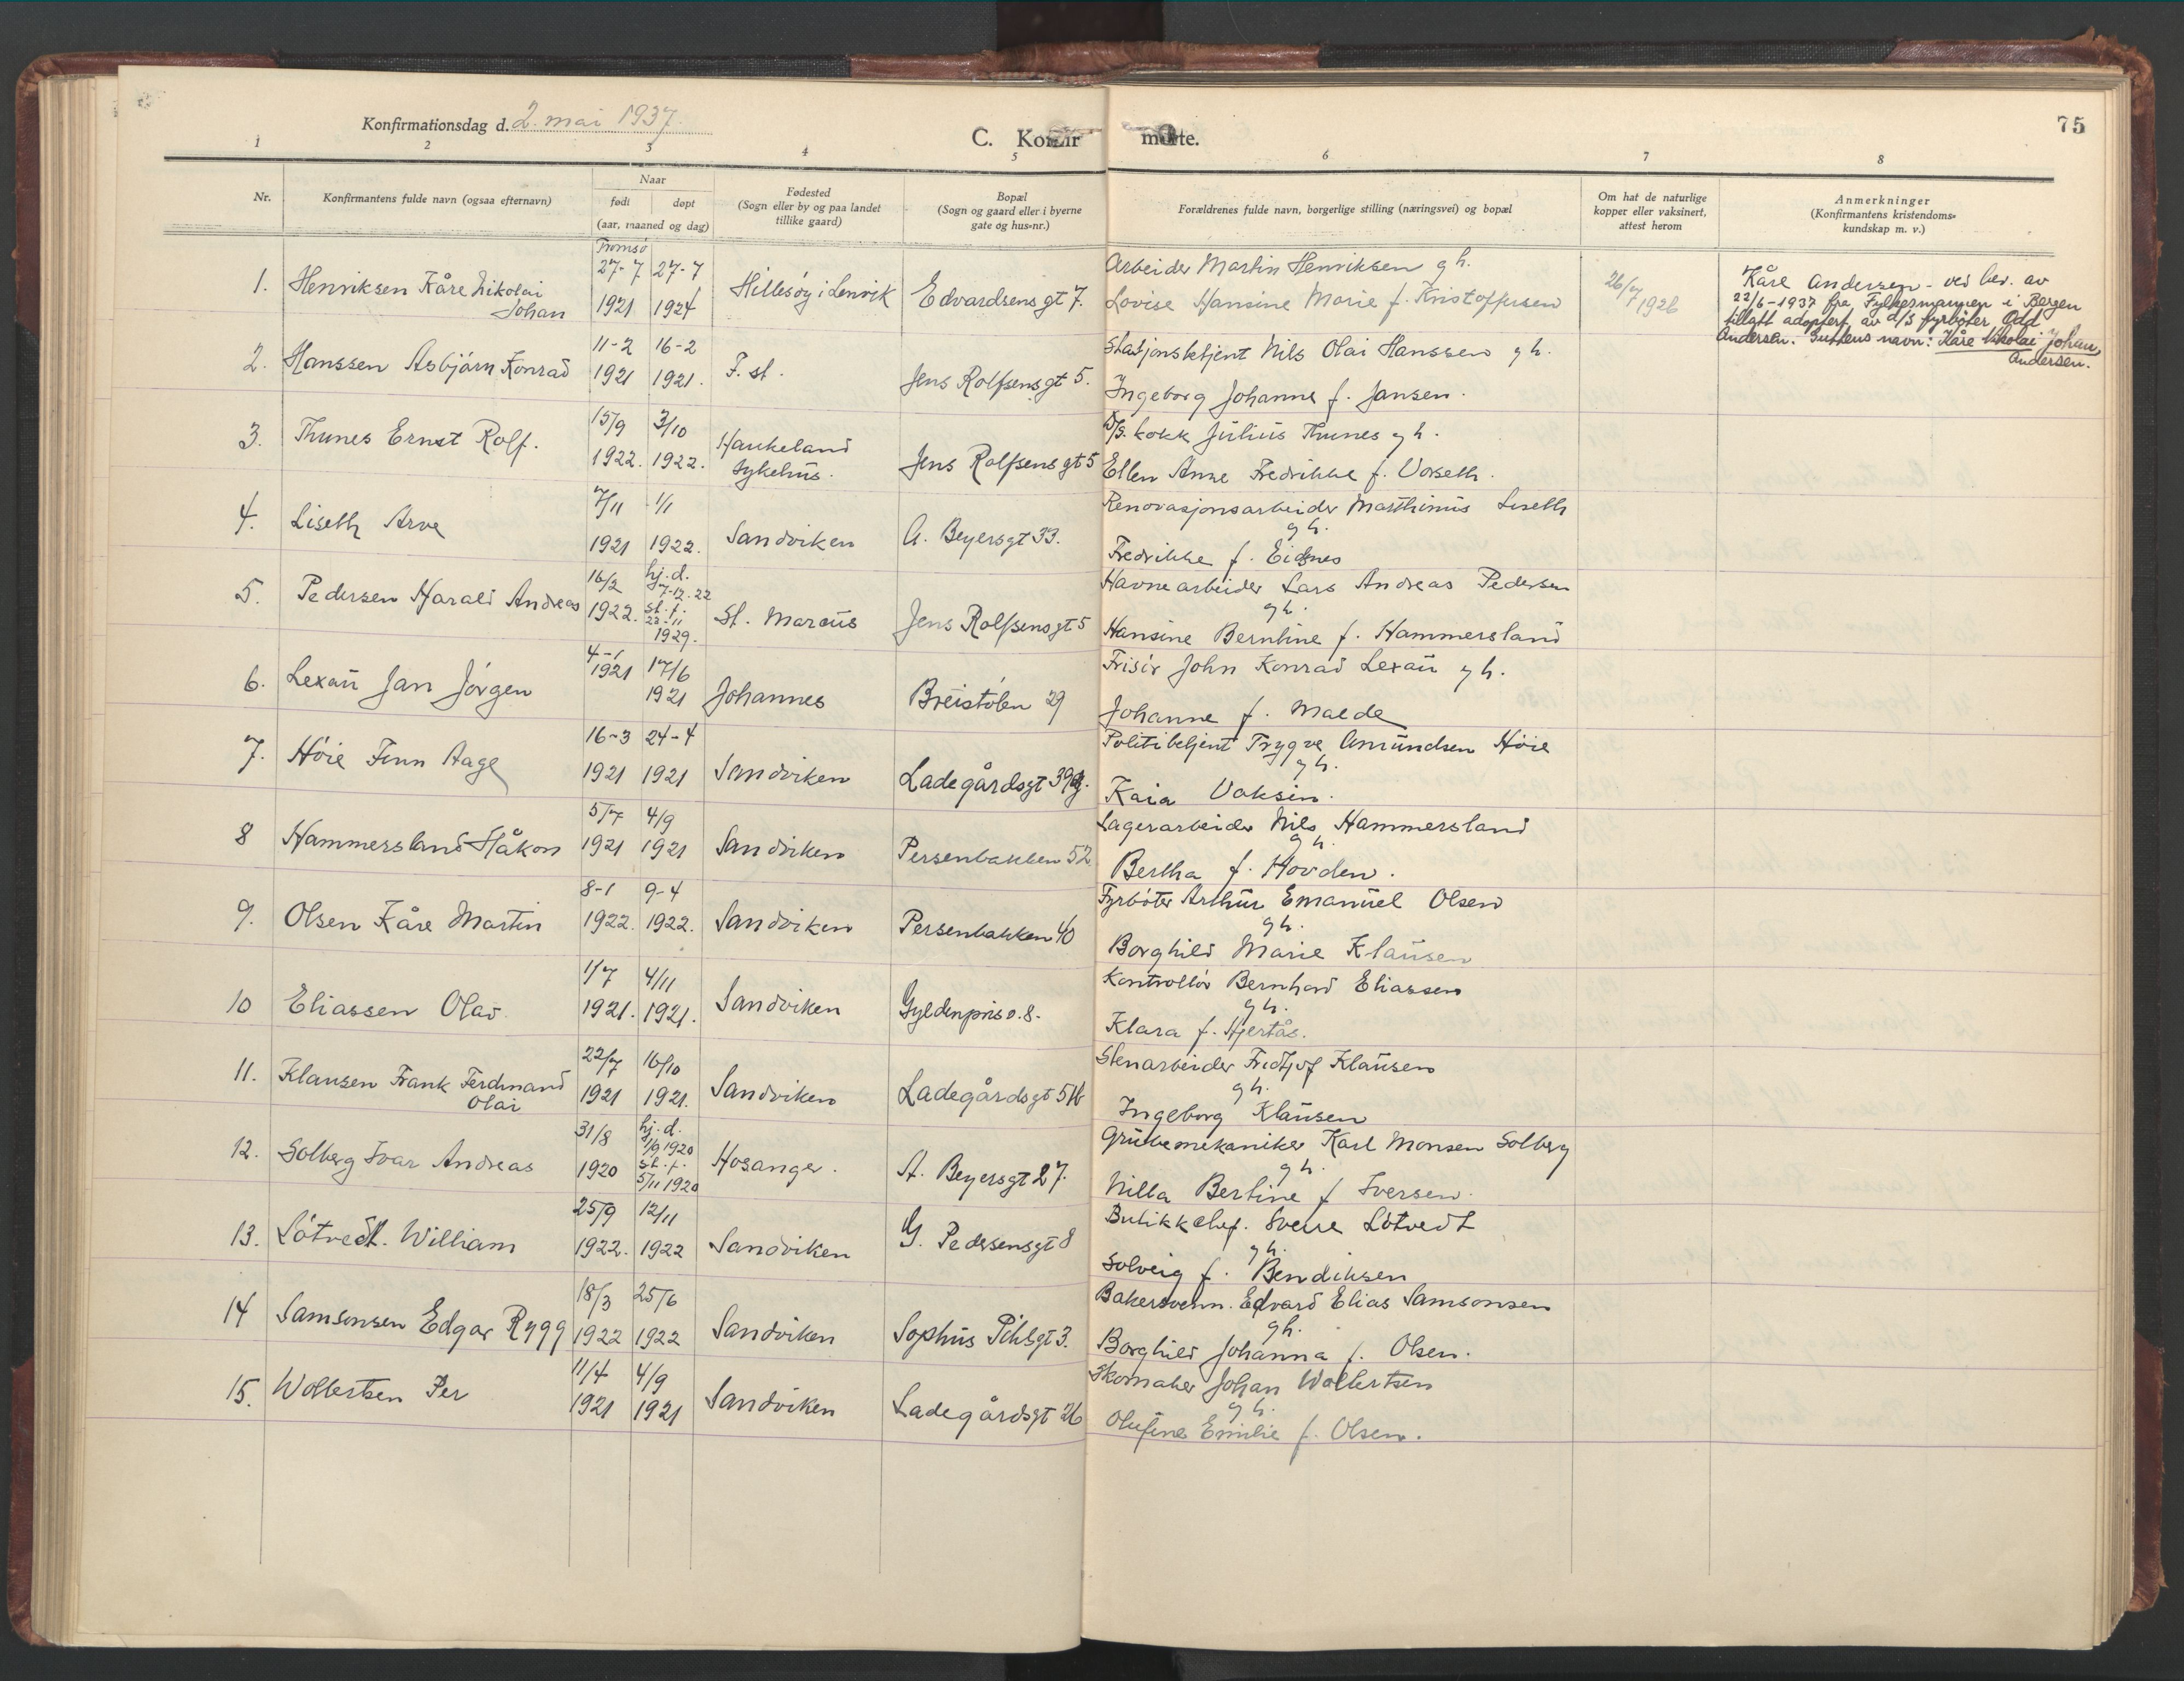 75
Konfirmationsdag d. 2. mai 1937.
C. Konfir m te.
1 2 3 4 5 6 7 8
Nr.
Konfirmantens fulde navn (ogsaa efternavn)
Naar
født døpt
(aar, maaned og dag)
Fødested
(Sogn eller by og paa landet
tillike gaard)
Bopæl
(Sogn og gaard eller i byerne
gate og hus-nr.)
Forældrenes fulde navn, borgerlige stilling (næringsvei) og bopæl
Om hat de naturlige
kopper eller vaksinert,
attest herom
Anmerkninger
(Konfirmantens kristendoms-
kundskap m. v.)
Tromsø
1. Henriksen Kåre Nikolai
Johan
27-7 1921
27-7 1924
Hillesøy i Lenvik
Edvardsens gt 7.
Arbeider Martin Henriksen g h.
Lovise Hansine Marie f. Kristoffersen
26/7 1926
Kåre Andersen - ved bev. av
22/6-1937 fra Fylkesmannen i Bergen
tillatt adoptert av d/s fyrbøter Odd
Andersen. Guttens navn: Kåre Nikolai Johan
Andersen.
2. Hanssen Asbjørn Konrad
11-2 1921
16-2 1921.
F. st.
Jens Rolfsensgt 5.
Stasjonsbetjent Nils Olai Hanssen g h.
Ingeborg Johanne f. Jansen.
3. Thunes Ernst Rolf.
15/9 1922.
3/10 1922.
Haukeland
sykehus.
Jens Rolfsens gt 5
D/S. kokk Julius Thunes g h.
Ellen Anne Fredrikke f. Vorseth.
4. Liseth Arve
7/11 1921
1/1 1922.
Sandviken
A. Beyersgt 33.
Renovasjonsarbeider Matthinus Liseth
g h.
Fredrikke f. Eidsnes
5. Pedersen Harald Andreas
16/2 1922.
hj. d.
7-12.22
st. f.
22-11
1929.
St. Marcus
Jens Rolfsensgt 5
Havnearbeider Lars Andreas Pedersen
g h.
Hansine Berntine f. Hammersland
6. Lexau Jan Jørgen
4-1 1921
17/6 1921
Johannes
Breistølen 29
Frisør John Konrad Lexau g h.
Johanne f. Malde
7. Høie Finn Aage
16-3 1921
24-4 1921
Sandviken
Ladegårdsgt 39
Politibetjent Trygve Amundsen Høie
g h.
Kaia Vaksin.
8 Hammersland Håkon
5/7 1921
4/9 1921
Sandviken
Persenbakken 52
Lagerarbeider Nils Hammersland
g h.
Bertha f. Hovden.
9. Olsen Kåre Martin
8-1 1922.
9-4 1922.
Sandviken
Persenbakken 40
Fyrbøter Arthur Emanuel Olsen
g h.
Borghild Marie Klausen
10 Eliassen Olav
1/7 1921.
4/11 1921.
Sandviken
Gyldenpris o. 8.
Kontrollør Bernhard Eliassen
g h.
Klara f. Hjertås.
11. Klausen Frank Ferdinand
Olai
22/7 1921
16/10 1921.
Sandviken
Ladegårdsgt 51b
Stenarbeider Fredtjof Klausen
g h.
Ingeborg Klausen
12. Solberg Ivar Andreas
31/8 1920
hj. d.
1/9 1920
st. f.
5/11 1920
Hosanger.
A. Beyersgt 27.
Grubemekaniker Karl Monsen Solberg
g h.
Nilla Bertine f Iversen.
13. Løtvedt. William
25/9 1922.
12/11 1922
Sandviken
G. Pedersensgt 8
Butikkchef. Sverre Løtvedt
g h.
Solveig f. Bendiksen
14 Samsonsen Edgar Rygg
18/3 1922
25/6 1922
Sandviken
Sophus Pihlsgt 3.
Bakersvenn. Edvard Elias Samsonsen
g h.
Borghild Johanna f. Olsen.
15. Wollertsen Per
11/4 1921
4/9 1921
Sandviken
Ladegårdsgt 26
Skomaker Johan Wollertsen
g h.
Olufine Emilie f. Olsen.